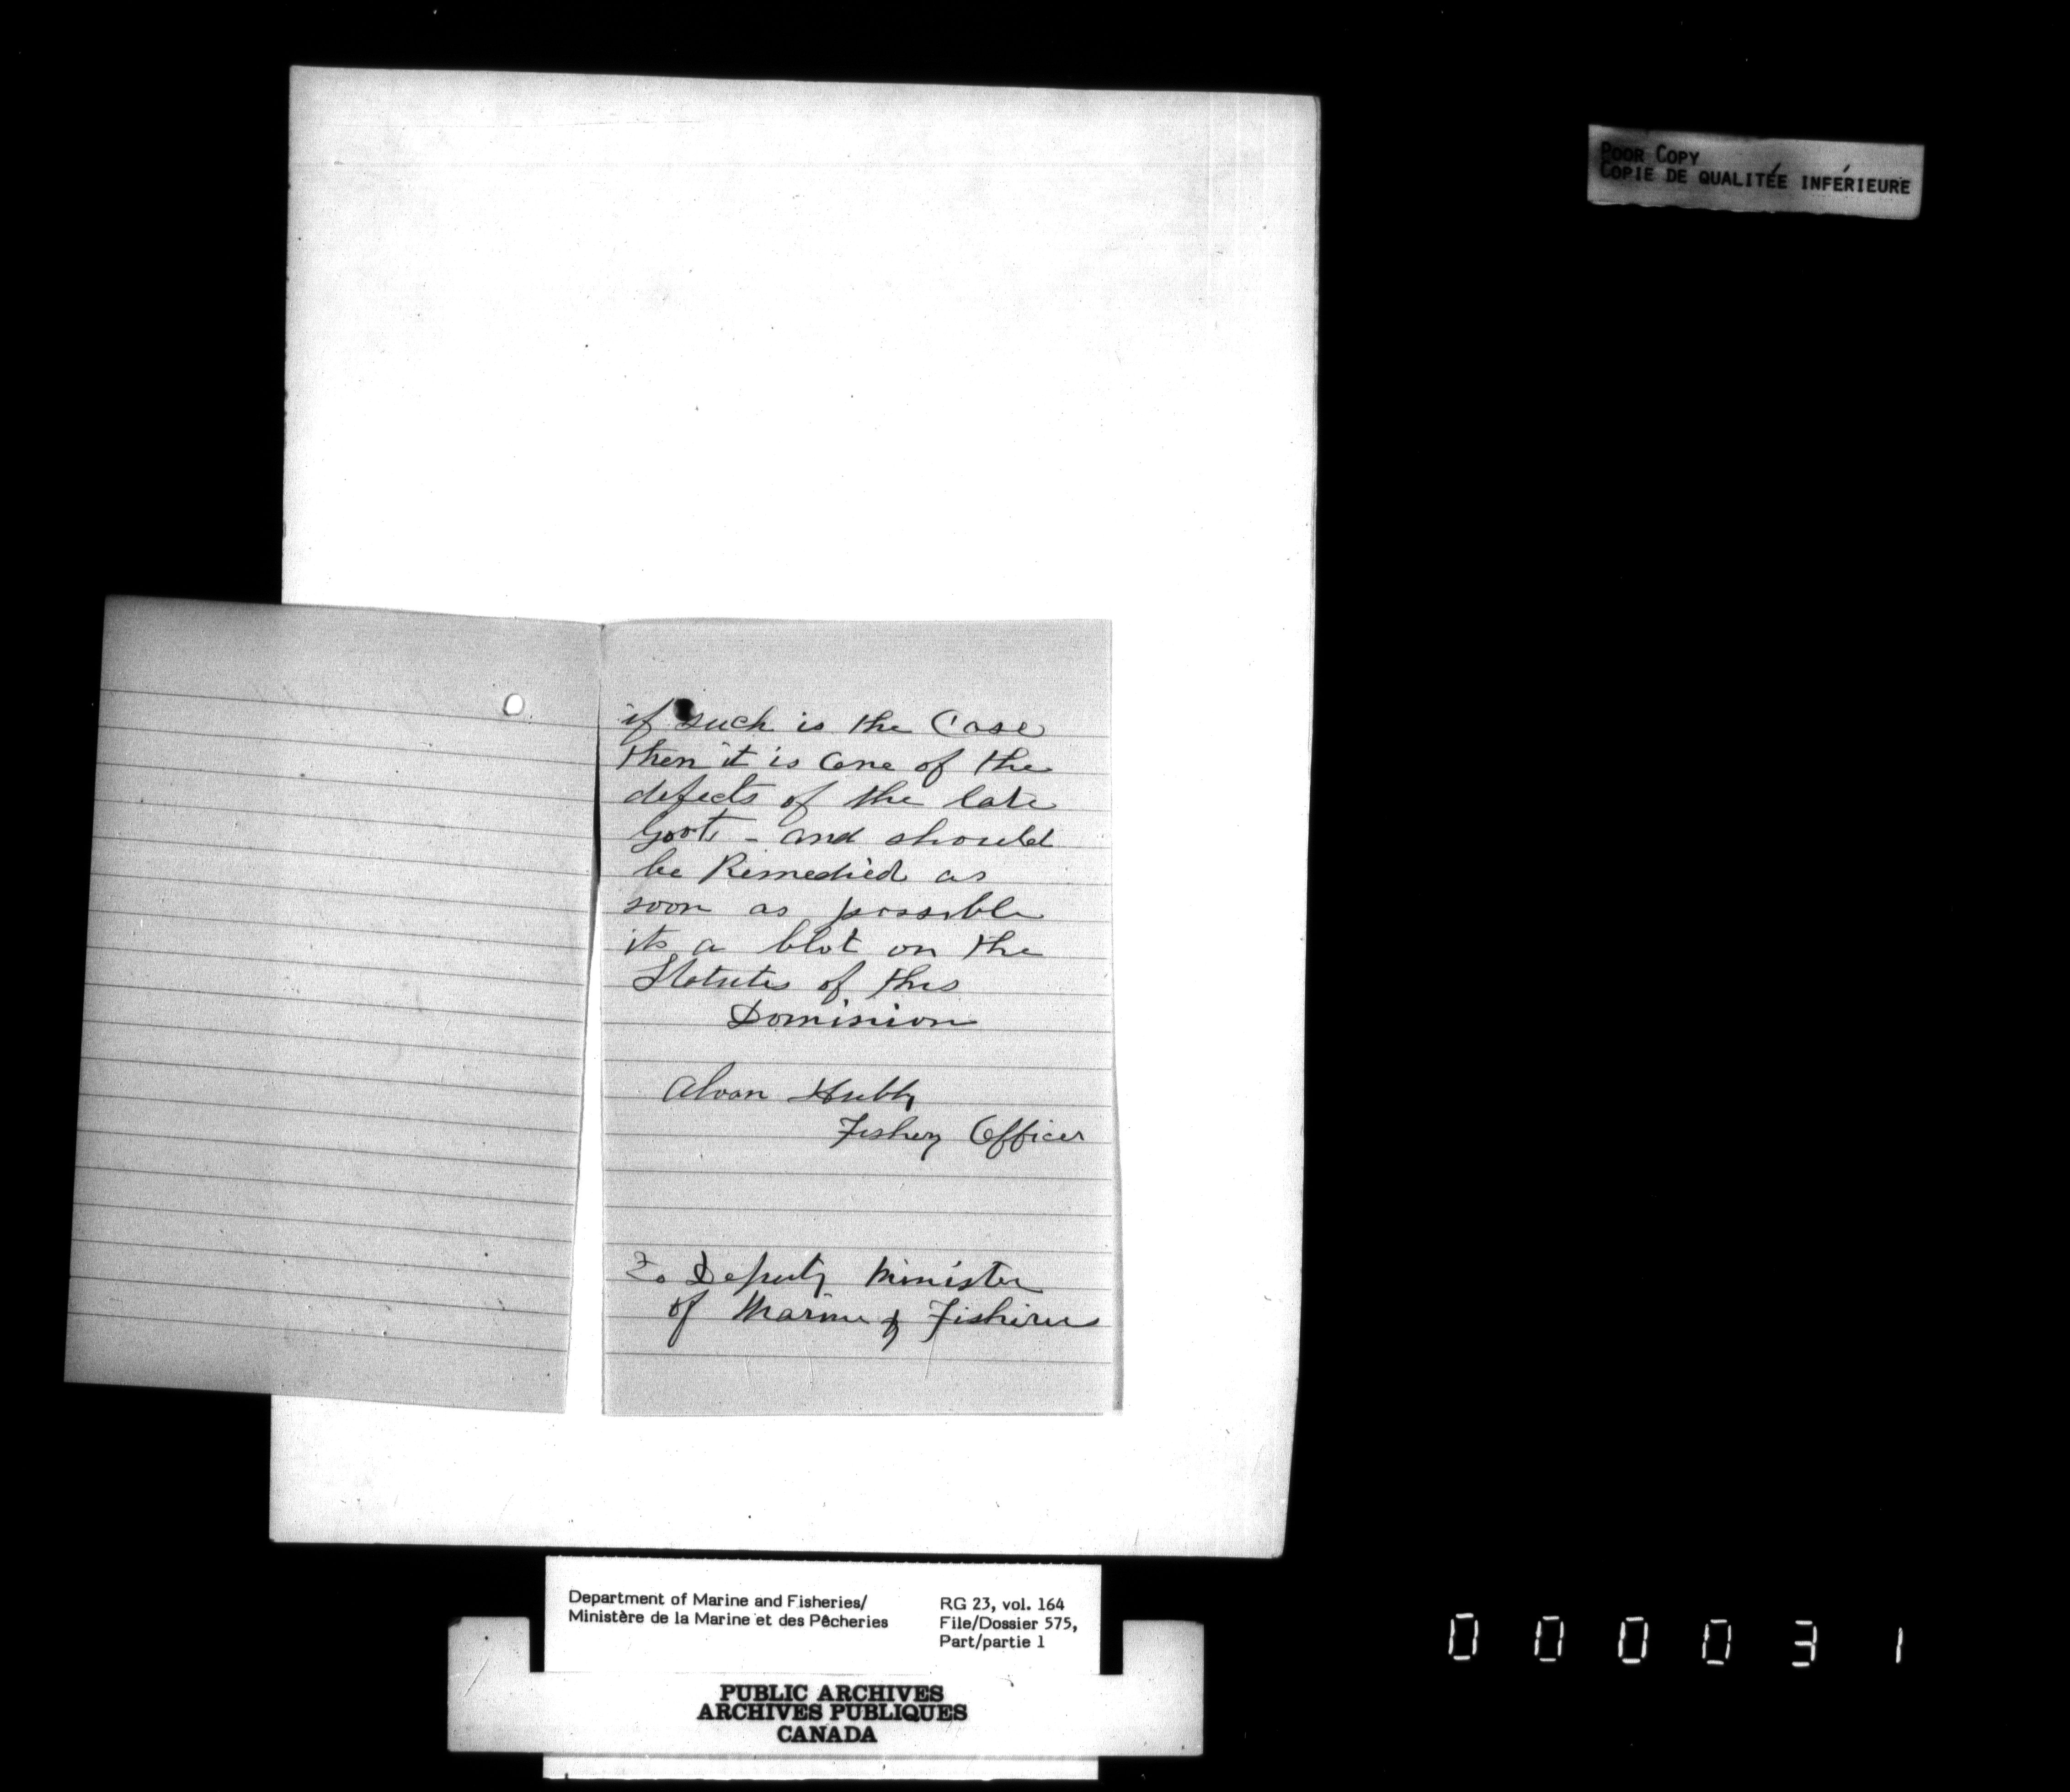 POOR COPY
COPIE DE QUALITÉE INFÉRIEURE
if such is the Case
then it is one of the
defects of the late
Govt - and should
be Remedied as
soon as possible
its a blot on the
Statutes of this
Dominion
Alvan Hubly
Fishery Officer
To Deputy Minister
of Marine & Fisheries
Department of Marine and Fisheries/
Ministère de la Marine et des Pêcheries
RG 23, vol. 164
File/Dossier 575,
Part/partie 1
PUBLIC ARCHIVES
ARCHIVES PUBLIQUES
CANADA
000031